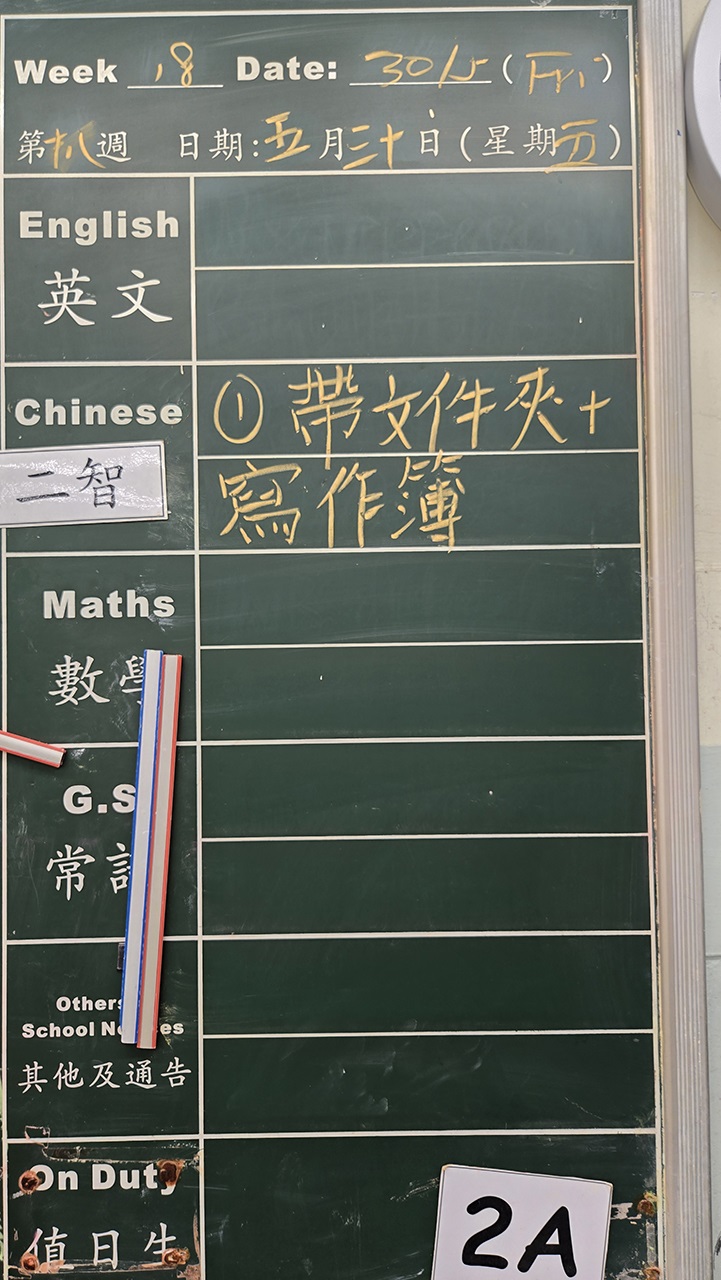 Week 18 Date: 30/5 (Fri)
第十八週 日期:五月三十日(星期五)
English
英文
Chinese ① 帶文件夾+
二智 寫作簿
Maths
數學
G.S
常識
Others
School No es
其他及通告
On Duty
值日生
2A